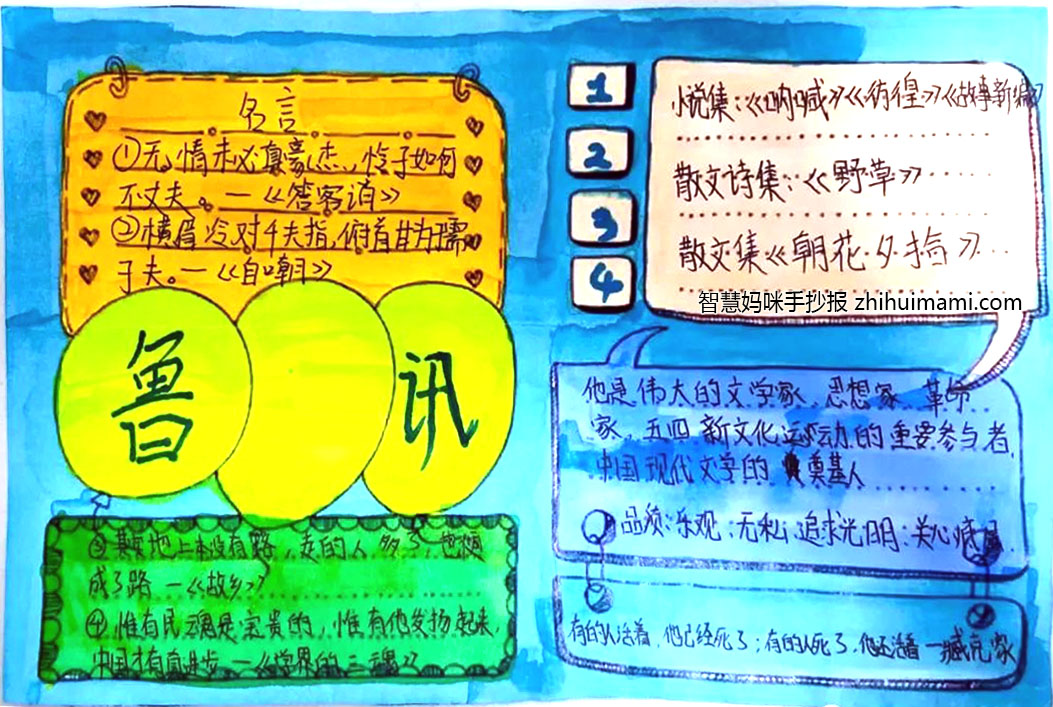 名言
①无情未必真豪杰,怜子如何
不丈夫。—《答客诮》
②横眉冷对千夫指,俯首甘为孺
子夫。—《自嘲》
鲁 讯
③其实地上本没有路,走的人多了,也便
成了路—《故乡》
④惟有民魂是宝贵的,惟有他发扬起来,
中国才有真进步—《学界的三魂》
1
2
3
4
小说集:《呐喊》《彷徨》《故事新编》
散文诗集:《野草》
散文集《朝花夕拾》
智慧妈咪手抄报 zhihuimami.com
他是伟大的文学家、思想家、革命
家、五四新文化运动的重要参与者,
中国现代文学的奠基人
品质:乐观;无私;追求光明;关心
有的人活着,他已经死了;有的人死了,他还活着—臧克家